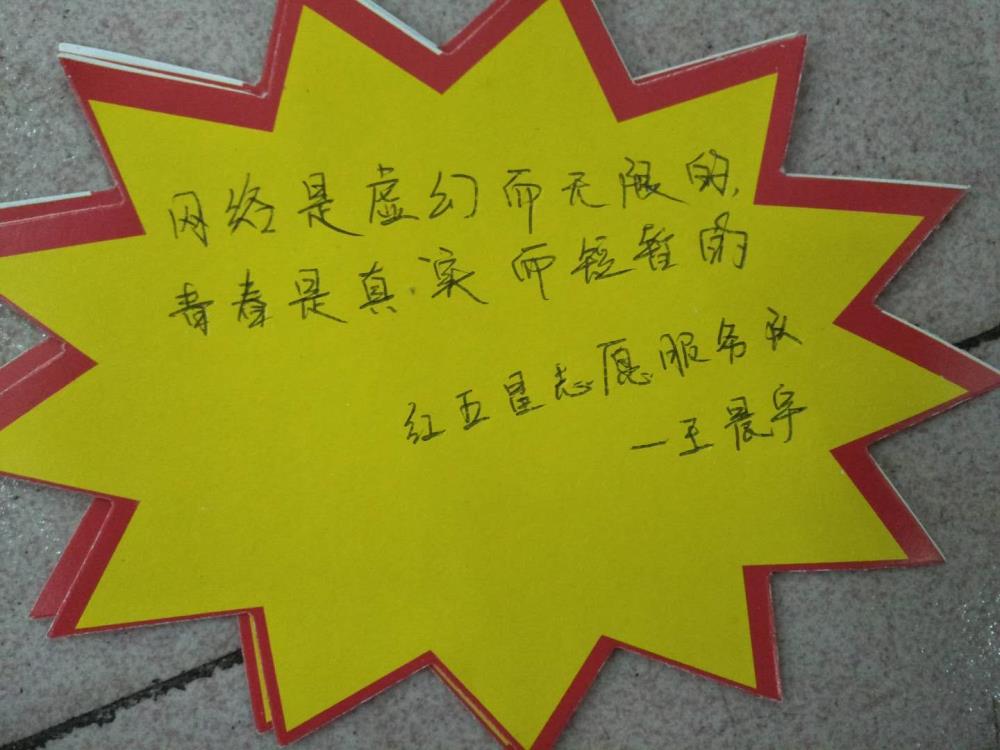 网络是虚幻而无限的,
青春是真实而短暂的
红五星志愿服务队
—王晨宇